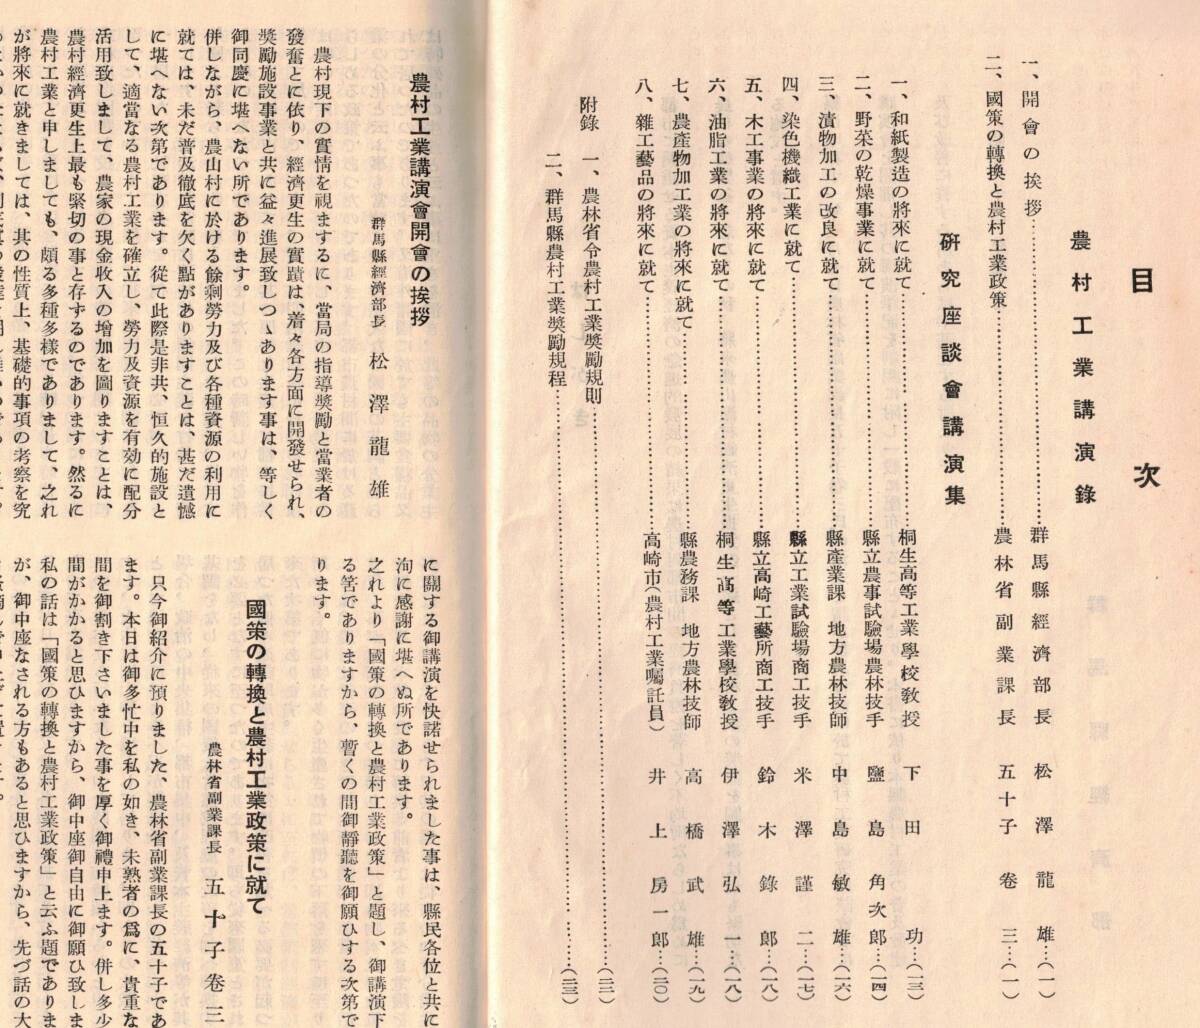 目次
農村工業講演錄
一、開會の挨拶……群馬縣經濟部長 松澤龍雄…(一)
二、國策の轉換と農村工業政策……農林省副業課長 五十子卷三…(一)
硏究座談會講演集
一、和紙製造の將來に就て……桐生高等工業學校敎授 下田功…(一三)
二、野菜の乾燥事業に就て……縣立農事試驗場農林技手 鹽島角次郞…(一四)
三、漬物加工の改良に就て……縣產業課 地方農林技師 中島敏雄…(一六)
四、染色機織工業に就て……縣立工業試驗場商工技手 米澤謹二…(一七)
五、木工事業の將來に就て……縣立高崎工藝所商工技手 鈴木錄郞…(一八)
六、油脂工業の將來に就て……桐生高等工業學校敎授 伊澤弘一…(一八)
七、農產物加工業の將來に就て……縣農務課 地方農林技師 高橋武雄…(一九)
八、雜工藝品の將來に就て……高崎市(農村工業囑託員) 井上房一郞…(二〇)
附錄 一、農林省令農村工業奬勵規則……
二、群馬縣農村工業奬勵規程……
農村工業講演會開會の挨拶
群馬縣經濟部長 松澤龍雄
農村現下の實情を視まするに、當局の指導奬勵と當業者の
發奮とに依り、經濟更生の實蹟は、着々各方面に開發せられ、
奬勵施設事業と共に益々進展致しつゝあります事は、等しく
御同慶に堪へない所であります。
併しながら、農山村に於ける餘剩勞力及び各種資源の利用に
就ては、未だ普及徹底を欠く點がありますことは、甚だ遺憾
に堪へない次第であります。從て此際是非共、恒久的施設と
して、適當なる農村工業を確立し、勞力及資源を有効に配分
活用致しまして、農家の現金收入の增加を圖りますことは、
農村經濟更生上最も緊切の事と存ずるのであります。然るに
農村工業と申しましても、頗る多種多樣でありまして、之れ
が將來に就きましては、其の性質上、基礎的事項の考察を究
に關する御講演を快諾せられました事は、縣民各位と共に
洵に感謝に堪へぬ所であります。
之れより「國策の轉換と農村工業政策」と題し、御講演下
る筈でありますから、暫くの間御靜聽を御願ひする次第で
ります。
國策の轉換と農村工業政策に就て
農林省副業課長 五十子卷三
只今御紹介に預りました、農林省副業課長の五十子であ
ます。本日は御多忙中を私の如き、未熟者の爲に、貴重な
間を御割き下さいました事を厚く御禮申上ます。併し多少
間がかかると思ひますから、御中座御自由に御願ひ致しま
私の話は「國策の轉換と農村工業政策」と云ふ題でありま
が、御中座なされる方もあると思ひますから、先づ話の大